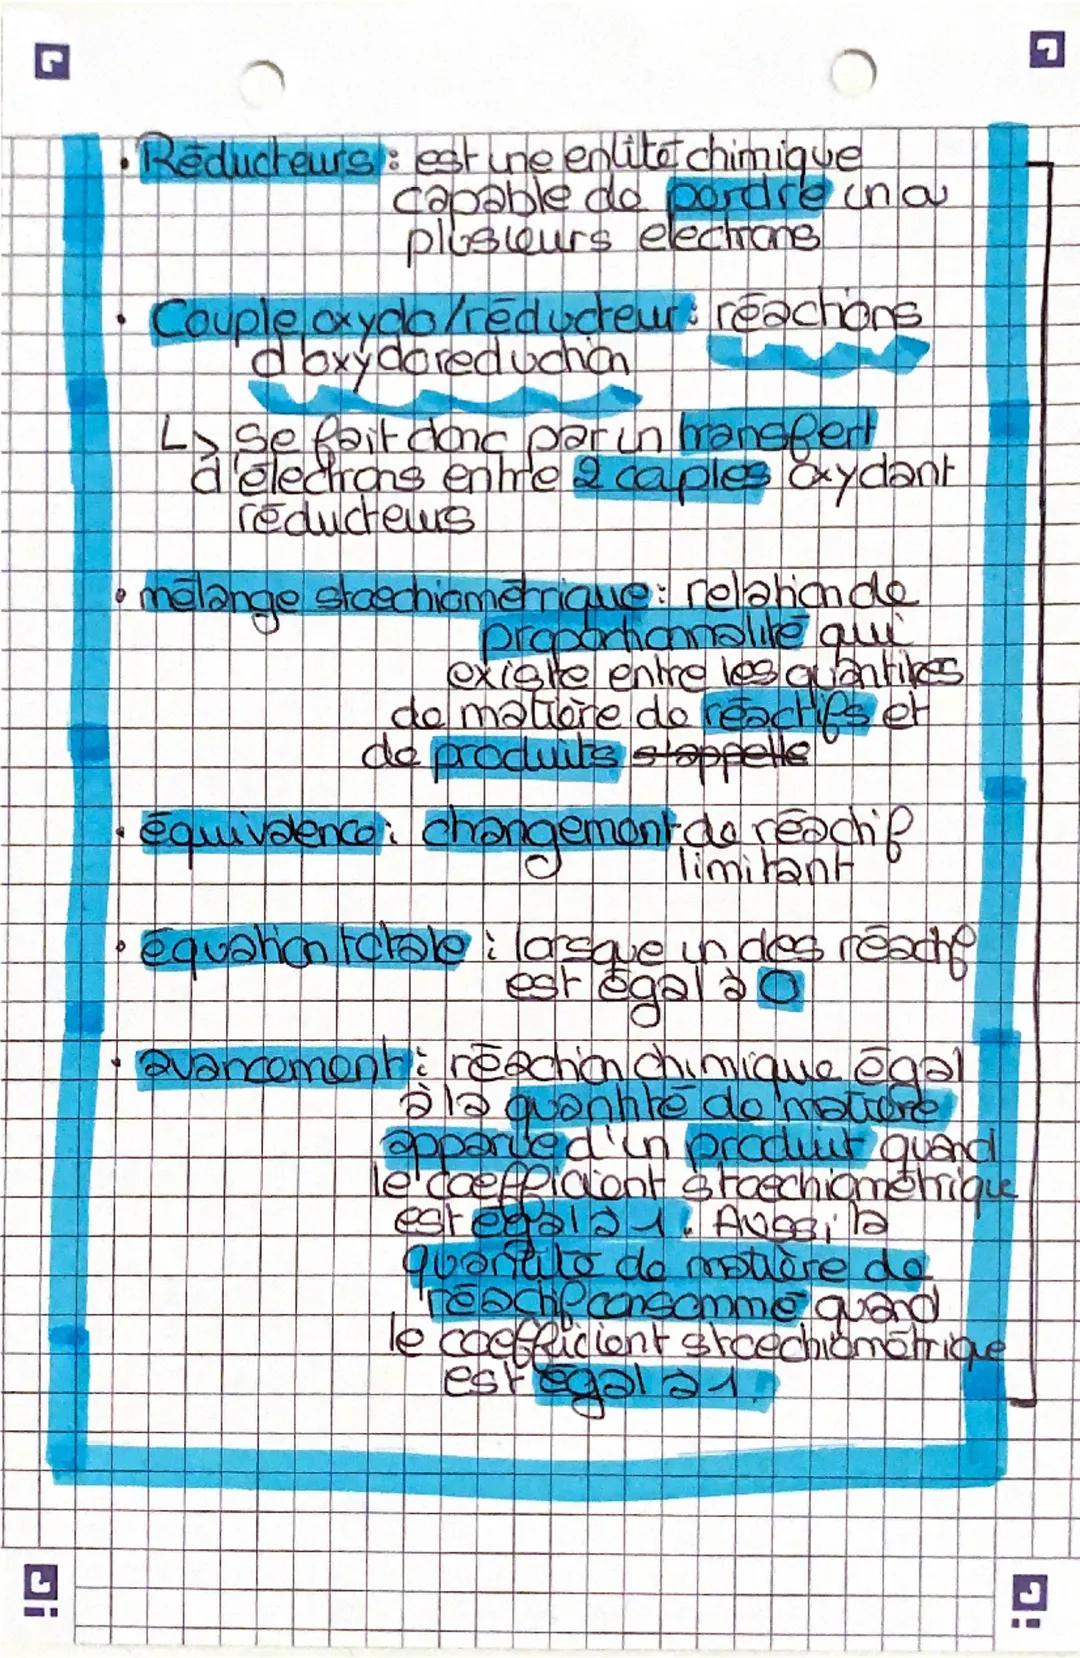 • Réducteurs : est une entité chimique
capable de perdre un ou
plusieurs electrons
• Couple oxydo/réducteur : réactions
d'oxydoreduction
↳ se fait donc par un transfert
d'électrons entre 2 couples oxydant
réducteurs
• mélange stoechiométrique : relation de
proportionnalité qui
existe entre les quantités
de matière de réactifs et
de produits s'appelle
• équivalence : changement de réactif
limitant
• équation totale : lorsque un des réactif
est égal à 0
• avancement : réaction chimique égal
à la quantité de matière
apparue d'un produit quand
le coefficient stoechiométrique
est égal à 1. Aussi la
quantité de matière de
réactif consommé quand
le coefficient stoechiométrique
est égal à 1